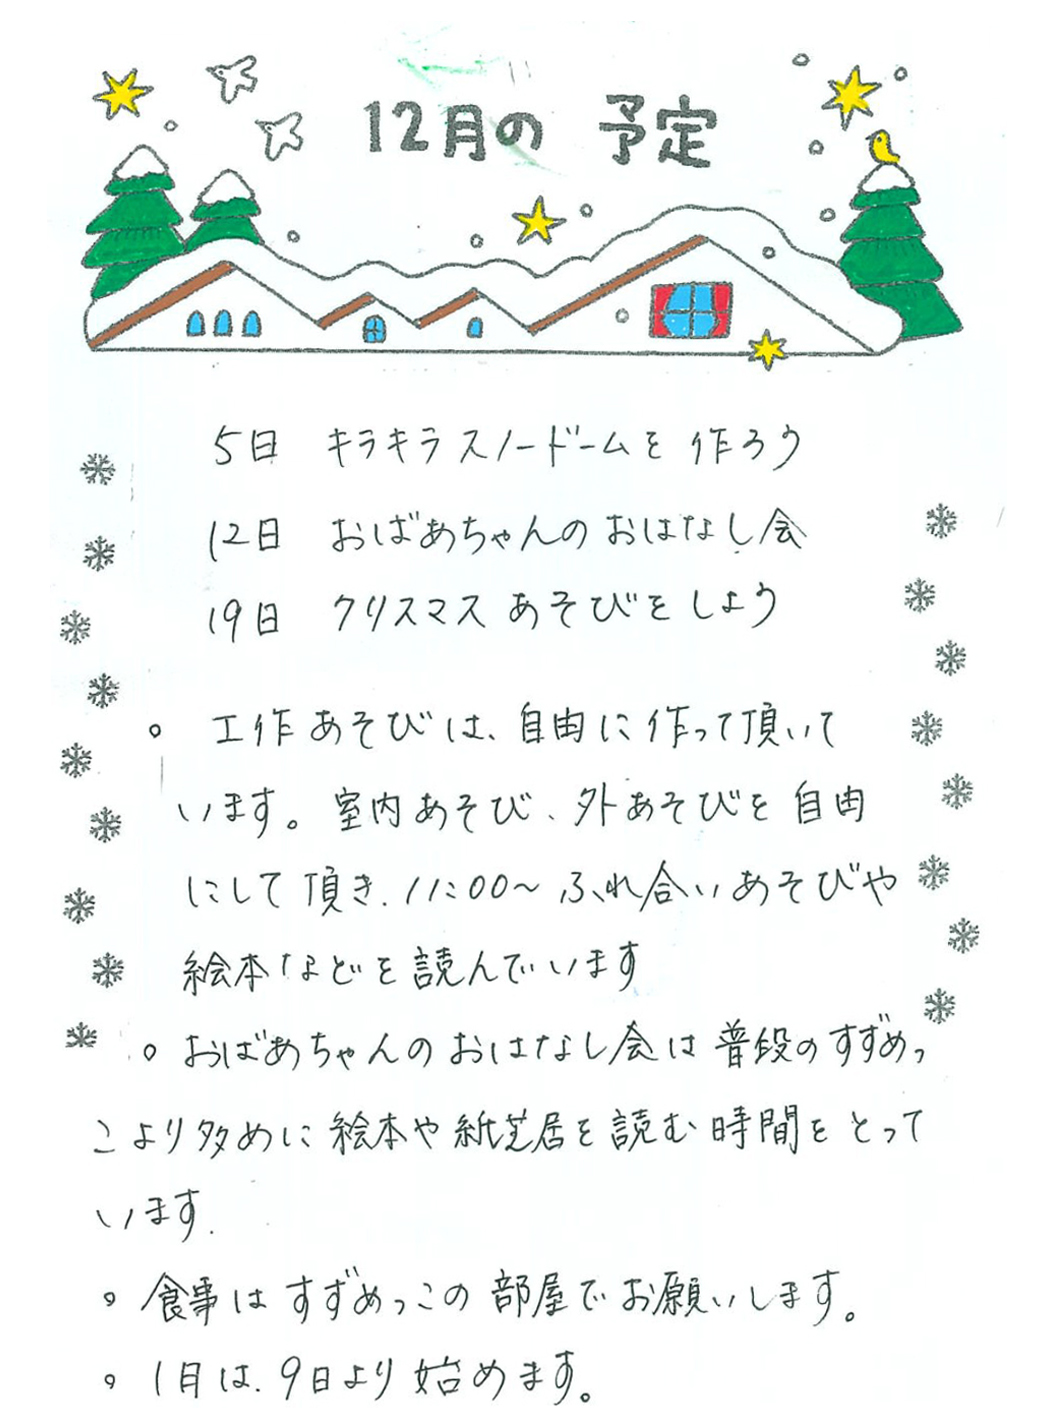 12月の 予定
5日 キラキラスノードームを作ろう
12日 おばあちゃんのおはなし会
19日 クリスマスあそびをしよう
。工作あそびは、自由に作って頂いて
います。室内あそび、外あそびを自由
にして頂き、11:00～ふれ合いあそびや
絵本などを読んでいます
。おばあちゃんのおはなし会は普段のすずめっ
こより多めに絵本や紙芝居を読む時間をとって
います.
。食事はすずめっこの部屋でお願いします。
。1月は、9日より始めます。